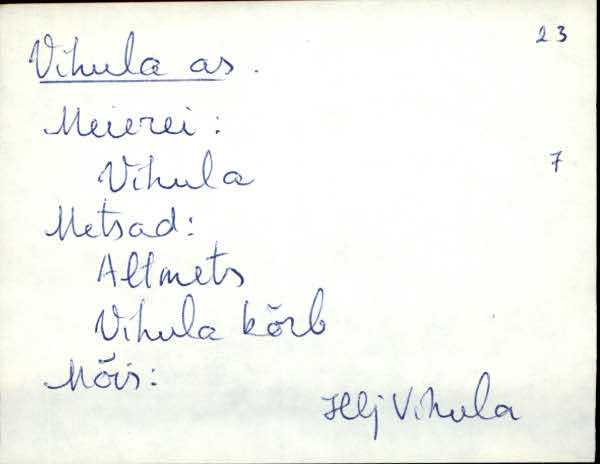 23
Vihula as.
Meierei:
Vihula 7
Metsad:
Altmets
Vihula kõrb
Mõis:
Hlj Vihula